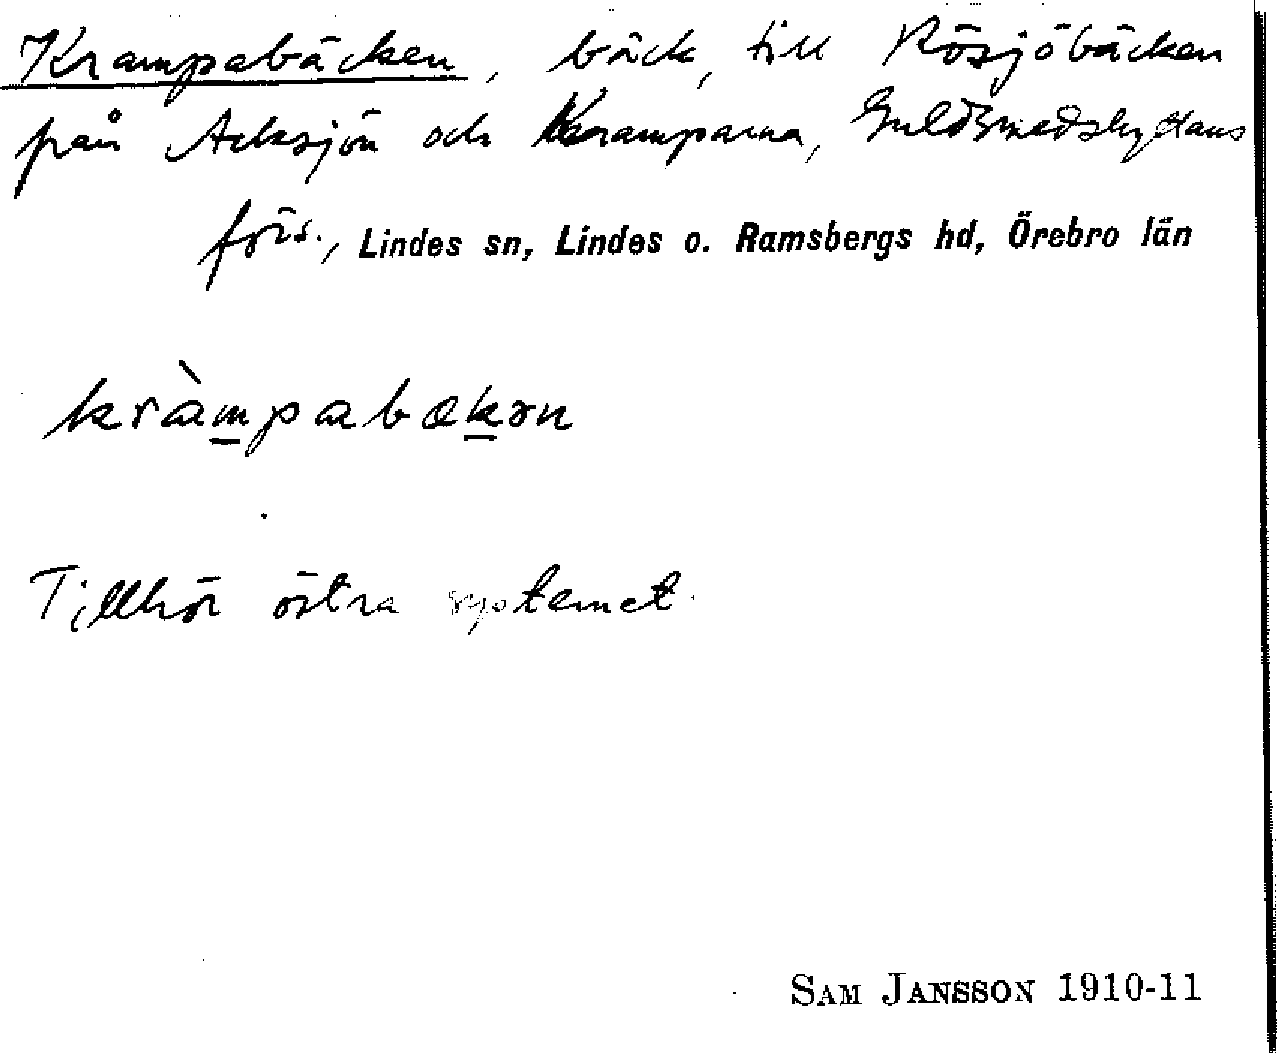 Krampabäcken, bäck, till Rösjöbäcken
från Acksjön och Kramparna, Guldsmedshyttans
förs., Lindes sn, Lindes o. Ramsbergs hd, Örebro län
kràmpabækən
Tillhör östra systemet.
SAM JANSSON 1910-11